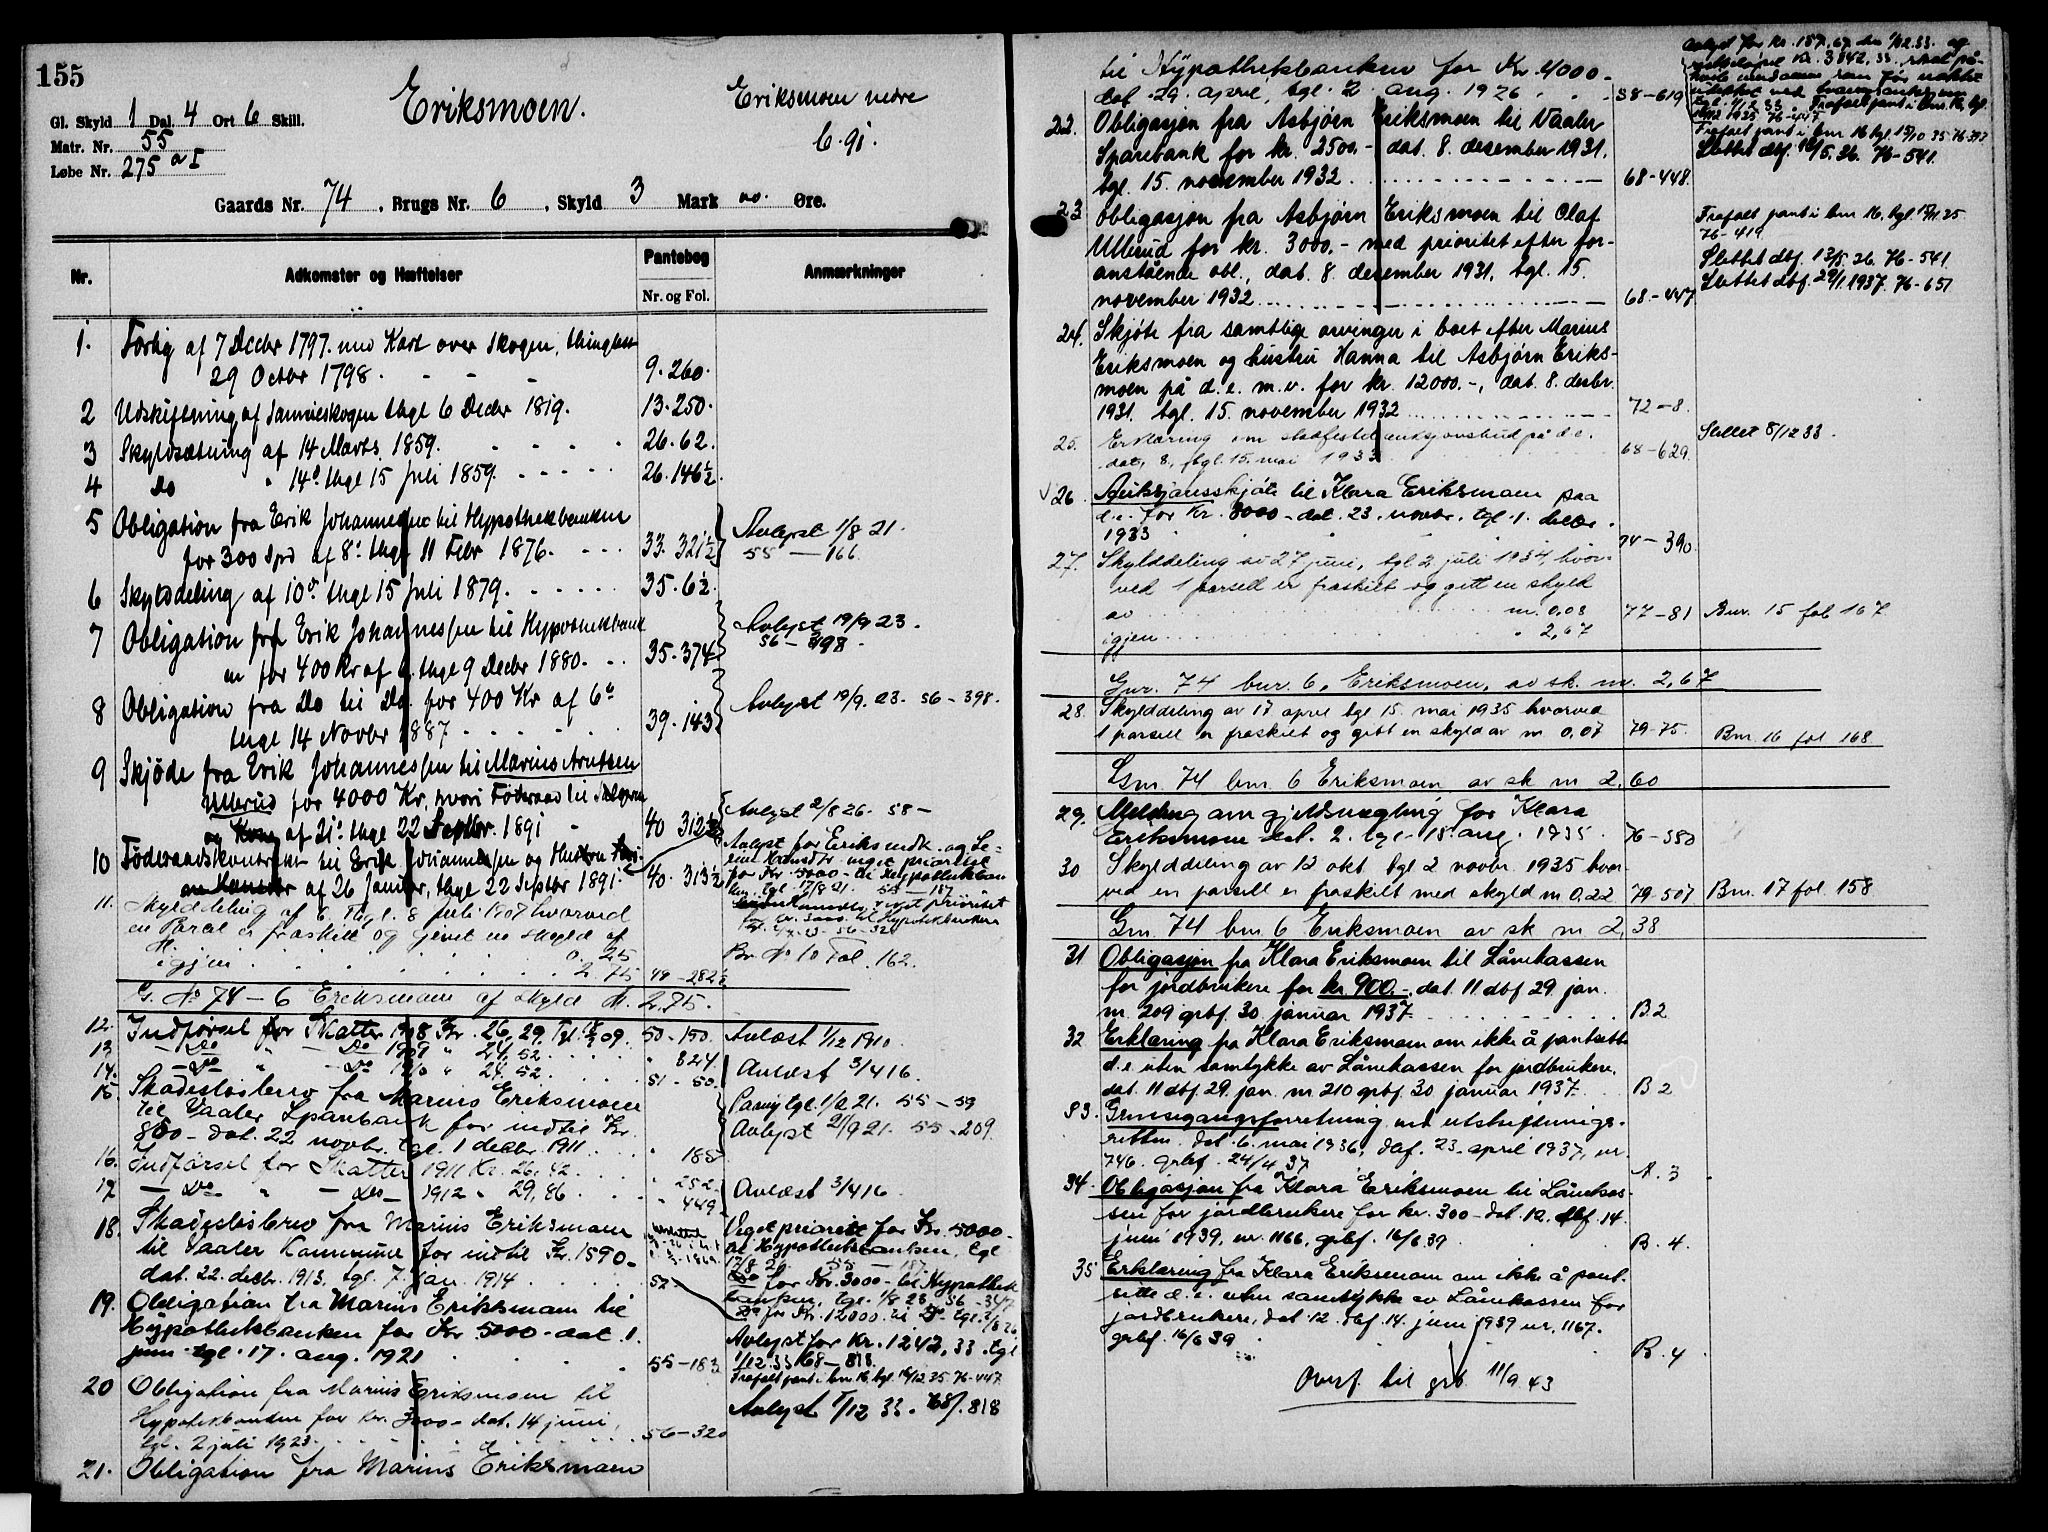 155
Eriksmoen.
Eriksmoen nedre
Gl. Skyld 1 Dal. 4 Ort 6 Skill.
Matr. Nr. 55
Løbe Nr. 275 a I
Gaards Nr. 74, Brugs Nr. 6, Skyld 3 Mark 00. Øre.
Nr. Adkomster og Hæftelser Pantebog Anmærkninger
Nr. og Fol.
1. Forlig af 7 Decbr 1797. med Kart over Skogen, thinglæst
29 Octbr 1798. 9. 260.
2 Udskiftning af Sameieskogen thgl 6 Decbr 1819. 13. 250.
3 Skyldsætning af 14 Marts 1859. 26. 62.
4 Do " 14d. thgl 15 Juli 1859. 26. 146½
5 Obligation fra Erik Johannessen til Hypothekbanken
for 300 Spd af 8d. thgl 11 Febr 1876. 33. 321½ Avlyst 1/8 21.
55 — 166
6 Skylddeling af 10d. thgl 15 Juli 1879. 35. 6½
7 Obligation fra Erik Johannessen til Hypothekbank
en for 400 Kr af thgl 9 Decbr 1880. 35. 374 Avlyst 19/9 23.
56 — 398.
8 Obligation fra Do til Do for 400 Kr af 6d
thgl 14 Novbr 1887 39. 143 Avlyst 19/9. 23. 56 – 398.
9 Skjøde fra Erik Johannessen til Marius Arntsen
Ullerud for 4000 Kr, hvori Føderaad til Sælgeren
og Kone af 21d. thgl 22 Septbr. 1891 40 312½ Avlyst 2/8 26. 58 —
10 Føderaadskontrakt til Erik Johannessen og Hustru
af 26 Januar, thgl 22 Septbr 1891. 40. 313½
11. Skylddeling af 6. Thgl. 8 Juli 1907 hvorved
en Parcel er fraskilt og givet en skyld af
M. 0. 25
igjen 2. 75 49 – 282½ Br. No 10 Fol. 162.
G. No 74 – 6 Eriksmoen af skyld M. 2,75.
12. Indførsel for Skatter 1908 Kr. 26,29, Tgl. 09. 50 – 150. Avlæst 1/12 1910.
13 — Do " — Do 1909 " 24, 52. " 824.
14. — Do " — Do 1910 " 24. 52. 51 – 50. Avlæst 3/4 16.
15. Skadesløsbrev fra Marius Eriksmoen
til Vaaler Sparebank for indtil Kr.
800 – dat. 22 novbr. tgl. 1 decbr. 1911. " 185 Avlyst 2/9 21. 55 – 209.
16. Indførsel for Skatter 1911 Kr. 26, 42. " 252.
17 — Do " — Do — 1912 " 29, 86. " 449. Avlæst 3/4 16.
18. Skadesløsbrev fra Marius Eriksmoen
til Vaaler Kommune for indtil Kr. 1590 –
dat. 22. decbr. 1913, tgl. 7. jan. 1914. 52 –
Veget prioritet for Kr. 5000 –
til Hypothekbanken, tgl
17/8 21. 55 — 187.
Do for Kr. 3000 – til Hypothek
banken, tgl. 1/8 23 56 – 347
Do for Kr. 12000. til Do tgl.
19. Obligation fra Marius Eriksmoen til
Hypothekbanken for Kr 5000 – dat. 1.
juni tgl. 17. aug. 1921 55 – 183
Avlyst for Kr. 1242,33. tgl
1/12 33 68 – 818.
Frafalt pant i bnr 16 tgl. 14/12 35 76-447.
Avlyst 1/12 33. 68/. 818
20 Obligation fra Marius Eriksmoen til
Hypotekbanken for Kr. 3000 – dat. 14 juni,
tgl. 2 juli 1923. 56 – 320
21. Obligation fra Marius Eriksmoen
til Hypothekbanken for Kr. 4000 –
dat. 29. april, tgl. 2. aug. 1926 58 – 619
22. Obligasjon fra Asbjørn Eriksmoen til Vaaler
Sparebank for kr. 2500. – dat. 8. desember 1931.
tgl. 15. november 1932 68 – 448.
Frafalt pant i bnr 16 tgl 15/10 35 76-397
Slettet dbf. 13/5. 36. 76 – 541.
23 Obligasjon fra Asbjørn Eriksmoen til Olaf
Ullerud for kr. 3000. – med prioritet efter for-
anstående obl., dat. 8. desember 1931, tgl. 15.
november 1932 68 – 447
Frafalt pant i bnr 16. tgl 15/11 35
76 – 419.
Slettet dbf. 13/5. 36. 76 – 541.
Slettet dbf. 29/1 1937. 76 – 651
24. Skjøte fra samtlige arvinger i boet efter Marius
Eriksmoen og hustru Hanna til Asbjørn Eriks-
moen på d. e. m. v. for kr. 12000. –, dat. 8. desbr.
1931. tgl. 15. november 1932 72 – 8.
25. Erklæring om skafestet auksjonsbud på d. e.
dat. 8, tgl. 15. mai 1933 68 – 629. Slettet 8/12 33.
26. Auksjonsskjøte til Klara Eriksmoen paa
d. e. for Kr. 8000 – dat. 23. novbr. tgl. 1. decbr.
1933 74 – 390.
27. Skylddeling av 27 juni, tgl 2 juli 1934, hvor-
ved 1 parsell er fraskilt og gitt en skyld
av m. 0,08 77 – 81 Bnr. 15 fol 167
igjen " 2,67
Gnr. 74 bnr. 6, Eriksmoen, av sk. m. 2,67
28. Skylddeling av 17 april tgl 15. mai 1935 hvorved
1 parsell er fraskilt og gitt en skyld av m 0,07 79-75. Bnr. 16 fol 168
Gnr. 74 bnr. 6 Eriksmoen av sk m 2,60
29. Melding om gjeldsmegling for Klara
Eriksmoen dat. 2. tgl. 15 aug. 1935. 76 – 350
30 Skylddeling av 12 okt. tgl 2 novbr. 1935 hvor-
ved en parsell er fraskilt med skyld m 0.22 79-507 Bnr. 17 fol. 158
Gnr. 74 bnr. 6 Eriksmoen av sk m 2,38
31 Obligasjon fra Klara Eriksmoen til Lånekassen
for jordbrukere for kr 900. –, dat. 11. dbf 29. jan.
nr. 209 grbf. 30. januar 1937. B 2
32 Erklæring fra Klara Eriksmoen om ikke å pantsette
d. e. uten samtykke av Lånekassen for jordbrukere,
dat. 11 dbf. 29. jan. nr 210 grbf. 30 januar 1937. B 2
33. Grensegangsforretning ved utskiftnings-
retten. dat. 6. mai 1936, dbf. 23. april 1937, nr.
746. grbf. 24/4 37 A. 3
34. Obligasjon fra Klara Eriksmoen til Lånekas-
sen for jordbrukere for kr. 300 – dat. 12. dbf. 14.
juni 1939, nr. 1166, grbf. 16/6 39 B. 4.
35 Erklæring fra Klara Eriksmoen om ikke å pant-
sette d. e. uten samtykke av Lånekassen for
jordbrukere, dat. 12. dbf. 14. juni 1939 nr. 1167.
grbf. 16/6 39 B. 4
Overf. til grb. 11/9 43